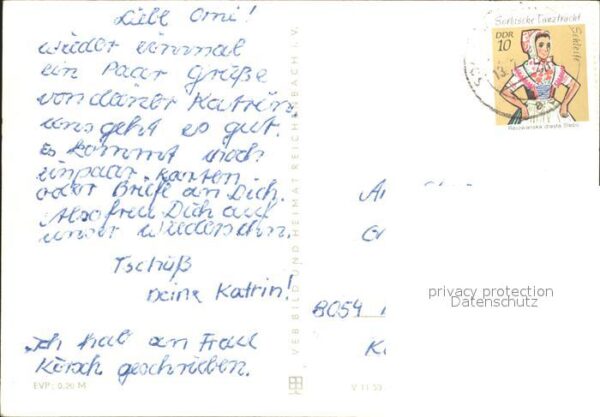 Liebe Omi!
wieder einmal
ein Paar Grüße
von deiner Katrin
uns geht es gut.
Es kommt noch
einpaar Karten
oder Briefe an Dich.
Also freu Dich auf
unser wiedersehn.
Tschüß
deine Katrin!
Ich hab an Frau
geschrieben.
EVP: 0,20 M
VEB BILD UND HEIMAT REICHENBACH I. V.
V 11 50
Sorbische Tanztracht
Schleife
DDR
10
8054
privacy protection
Datenschutz